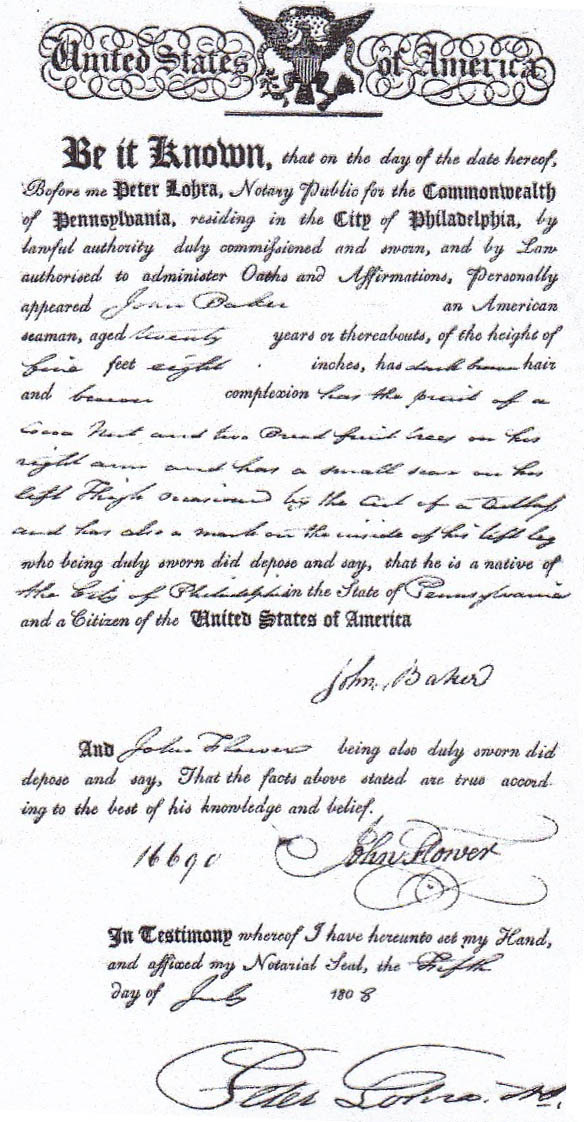 United States of America
Be it Known, that on the day of the date hereof,
Before me Peter Lohra, Notary Public for the Commonwealth
of Pennsylvania, residing in the City of Philadelphia, by
lawful authority duly commissioned and sworn, and by Law
authorised to administer Oaths and Affirmations, Personally
appeared John Baker an American
seaman, aged twenty years or thereabouts, of the height of
five feet eight inches, has dark brown hair
and brown complexion has the print of a
Cocoa Nut and two Bread fruit trees on his
right arm and has a small scar on his
left Thigh occasioned by the Cut of a Cutlass
and has also a mark on the inside of his left leg
who being duly sworn did depose and say, that he is a native of
the City of Philadelphia in the State of Pennsylvania
and a Citizen of the United States of America
John Baker
And John Flower being also duly sworn did
depose and say, That the facts above stated are true accord-
ing to the best of his knowledge and belief.
16690 John Flower
In Testimony whereof I have hereunto set my Hand,
and affixed my Notarial Seal, the Fifth
day of July 1808
Peter Lohra